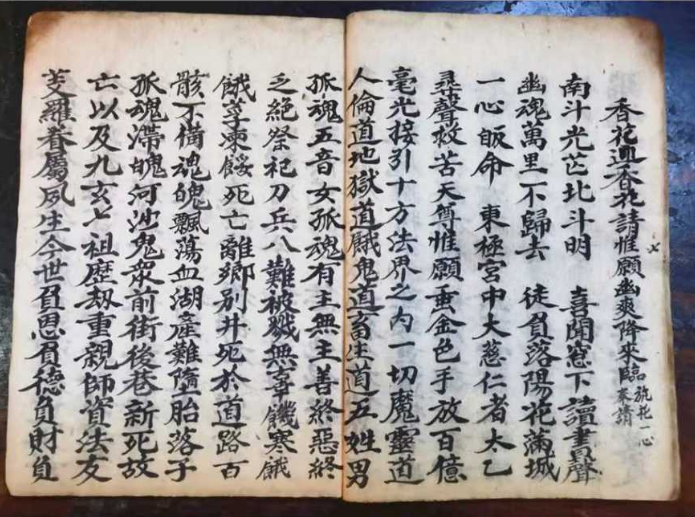 香花迎香花請惟願幽爽降來臨 旗花一心奉請
南斗光芒北斗明 喜聞窓下讀書聲
幽魂萬里不歸去 徒負落陽花滿城
一心皈命 東極宮中大慈仁者太乙
尋聲救苦天尊惟願垂金色手放百億
毫光接引十方法界之內一切魔靈道
人倫道地獄道餓鬼道畜生道五姓男
孤魂五音女孤魂有主無主善終惡終
乏絕祭祀刀兵八難被戮無辜饑寒餓
餓孚凍餒死亡離鄉別井死於道路百
骸不備魂魄飄蕩血湖產難墮胎落子
孤魂滯魄河沙鬼眾前街後巷新死故
亡以及九玄七祖歷劫重親師資法友
羅眷屬夙生今世負恩負德負財負